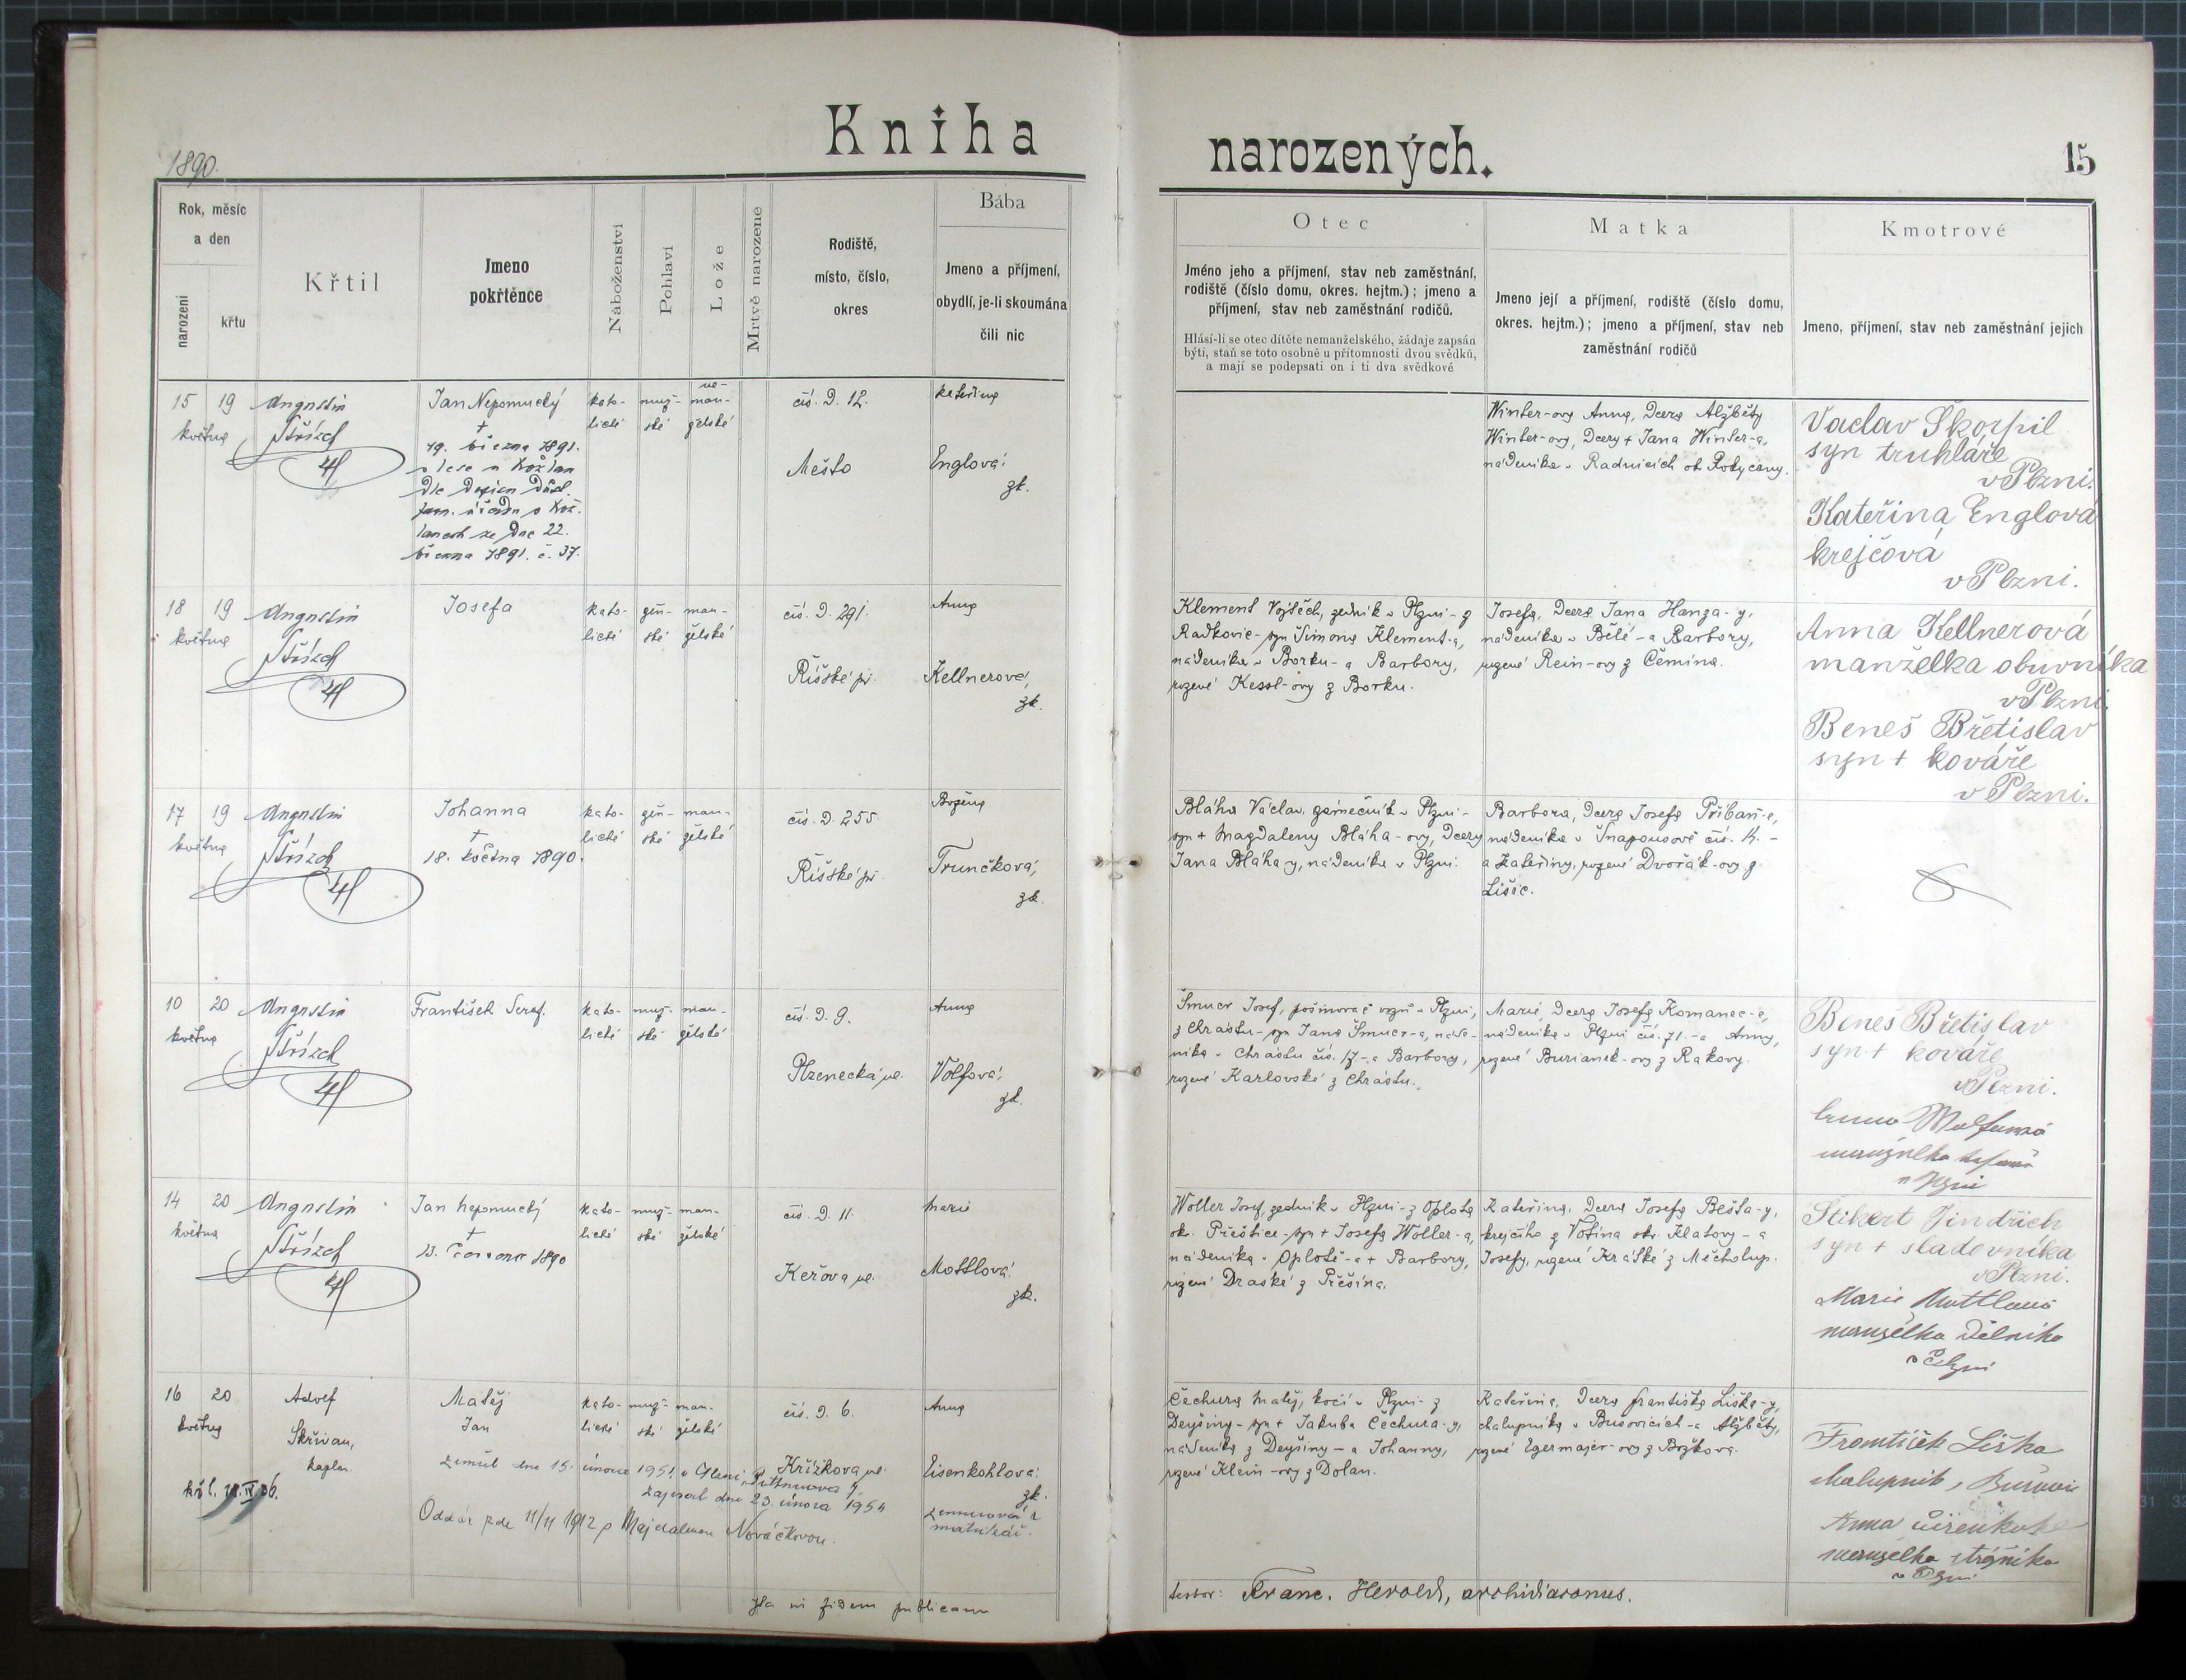 Kniha
narozených.
15
1890.
Rok, měsíc
a den
narození
křtu
Křtil
Jmeno
pokřtěnce
Náboženství
Pohlaví
Lože
Mrtvě narozene
Rodiště,
místo, číslo,
okres
Bába
Jmeno a příjmení,
obydlí, je-li skoumána
čili nic
Otec
Jméno jeho a příjmení, stav neb zaměstnání,
rodiště (číslo domu, okres. hejtm.); jmeno a
příjmení, stav neb zaměstnání rodičů.
Hlásí-li se otec dítěte nemanželského, žádaje zapsán
býti, staň se toto osobně u přítomnosti dvou svědků,
a mají se podepsati on i ti dva svědkové
Matka
Jmeno její a příjmení, rodiště (číslo domu,
okres. hejtm.); jmeno a příjmení, stav neb
zaměstnání rodičů
Kmotrové
Jmeno, příjmení, stav neb zaměstnání jejich
15 19
května
Augustin
Střízek
Jan Nepomucký
†
19. března 1891.
března 1891. č. 37.
kato-
lické
muž-
ské
ne-
man-
želské
čís. D. 12.
Město
Kateřina
Englová;
zk.
Winter-ova Anna, Dcera Alžběty
Winter-ovy, Dcery + Jana Winter-a,
nádeníka v Radnicích ok. Rokycany.
Vaclav Škorpil
syn truhláře
v Plzni.
Kateřina Englová
krejčová
v Plzni.
18 19
května
Augustin
Střízek
Josefa
kato-
lické
žen-
ské
man-
želské
čís. D. 291.
Říšské př.
Anna
Kellnerová,
zk.
Klement Vojtěch, zedník v Plzni - z
Radkovic - syn Šimona Klement-a,
nádeníka v Borku - a Barbory,
rozené Kessl-ovy z Borku.
Josefa, Dcera Jana Hanza-y,
nádeníka v Bělé - a Barbory,
rozené Rein-ovy z Čemína.
Anna Kellnerová
manželka obuvníka
v Plzni.
Beneš Břetislav
syn + kováře
v Plzni.
17 19
května
Augustin
Střízek
Johanna
†
18. května 1890.
kato-
lické
žen-
ské
man-
želské
čís. D. 255
Říšské př.
Božena
Trunčková,
zk.
Bláha Václav, zámečník v Plzni -
syn + Magdaleny Bláha-ovy, Dcery
Jana Bláha-y, nádeníka v Plzni.
Barbora, Dcera Josefa Přibaň-e,
nádeníka v Šnapousově čís. 4. -
a Kateřiny, rozené Dvořák-ovy z
Lišic.
10 20
května
Augustin
Střízek
František Seraf.
kato-
lické
muž-
ské
man-
želské
čís. D. 9.
Plzenecká ul.
Anna
Volfová;
zk.
Šmucr Josef, pošinovač vozů v Plzni,
z Chrástu - syn Jana Šmucr-a, náde-
níka v Chrástu čís. 17 - a Barbory,
rozené Karlovské z Chrástu.
Marie, Dcera Josefa Komanec-e,
nádeníka v Plzni čís. 71. - a Anny,
rozené Burianek-ovy z Rakovy.
Beneš Břetislav
syn + kováře
v Plzni.
14 20
května
Augustin
Střízek
Jan Nepomucký
†
13. července 1890
kato-
lické
muž-
ské
man-
želské
čís. D. 11.
Keřova ul.
Marie
Mottlová;
zk.
Woller Josef, zedník v Plzni - z Oplota
ok. Přeštice - syn + Josefa Woller-a,
nádeníka v Oplotě - a + Barbory,
rozené Draské z Přešína.
Kateřina, Dcera Josefa Bešta-y,
krejčího z Votína okr. Klatovy - a
Josefy, rozené Krátké z Měcholup.
Stikert Jindřich
syn + sladovníka
v Plzni.
Marie Mottlová
manželka dělníka
v Plzni
16 20
května
Adolf
Skřivan,
kaplan.
Matěj
Jan
kato-
lické
muž-
ské
man-
želské
čís. D. 6.
Křížkova ul.
Anna
Eisenkohlová;
zk.
zemřel dne 15. února 1951 v Plzni
zapsal dne 23. února 1954
matrikář.
Oddán zde 11/11 1912 s Majdalenou Nováčkovou.
Čechura Matěj, kočí v Plzni - z
Deyšiny - syn + Jakuba Čechura-y,
nádeníka z Deyšiny - a Johanny,
rozené Klein-ovy z Dolan.
Kateřina, Dcera Františka Liška-y,
chalupníka v Bušovicích - a Alžběty,
rozené Egermajer-ovy z Božkova.
František Liška
chalupník, Bušovic
Anna
manželka strážníka
v Plzni
Ita in fidem publicam
testor: Franc. Herold, archidiaconus.